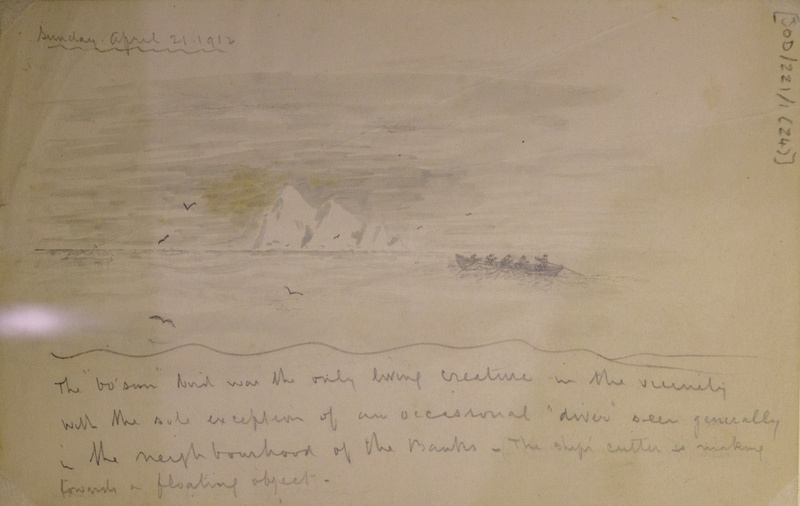 Sunday. April 21. 1912
[SOD/221/1 (24)]
The "bo'sun" bird was the only living creature in the vicinity
with the sole exception of an occasional "diver" seen generally
in the neighbourhood of the Banks - The ship's cutter is making
towards a floating object -